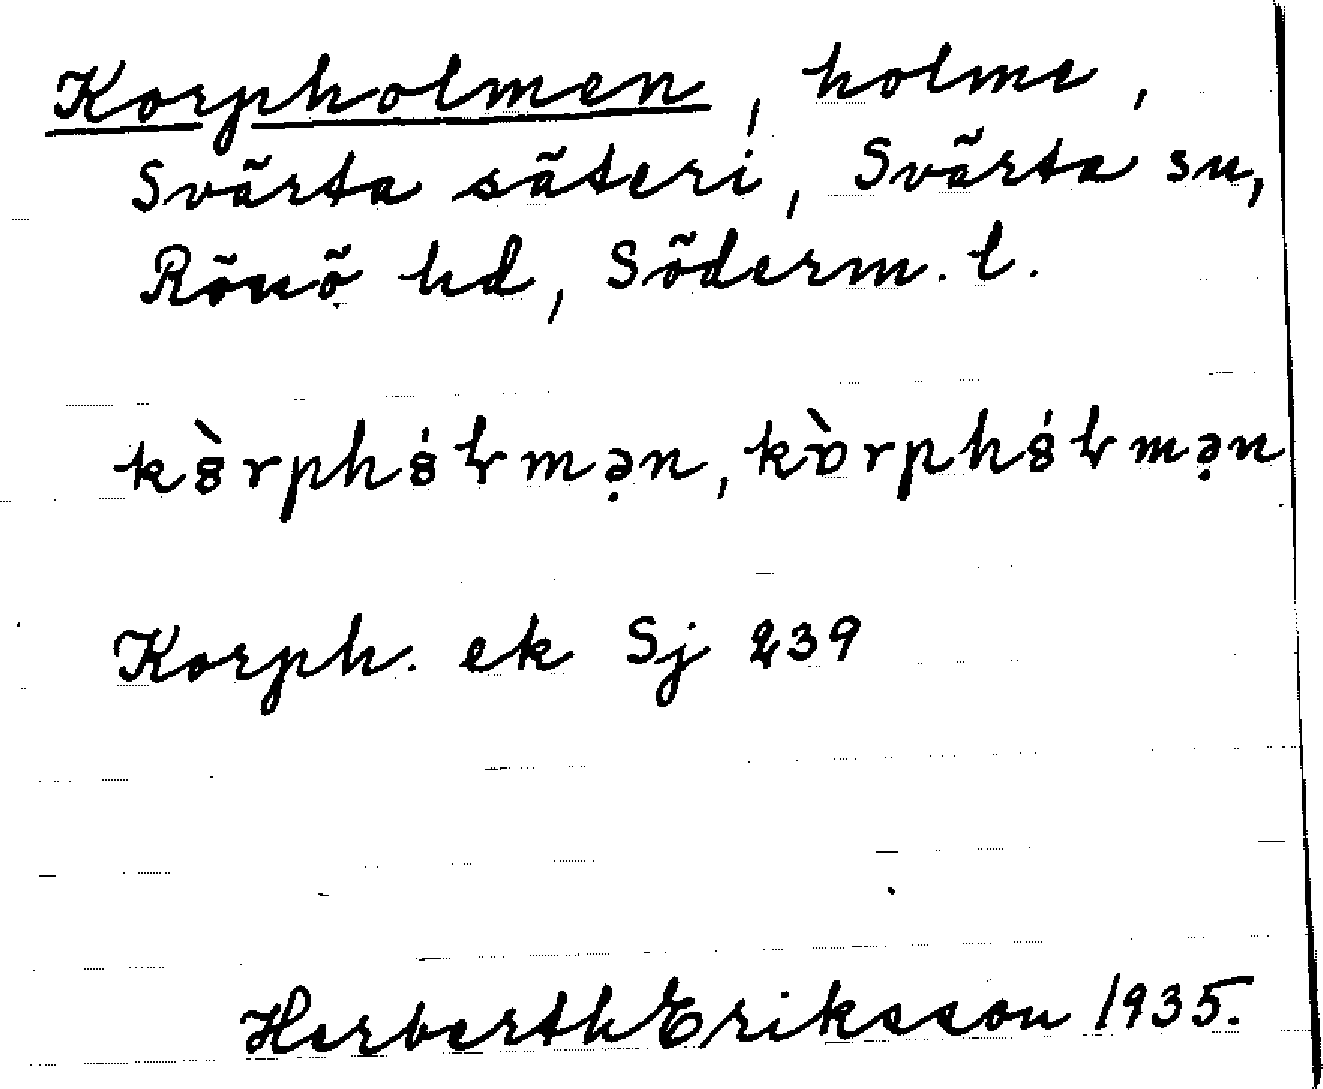 Korpholmen, holme,
Svärta säteri, Svärta sn,
Rönö hd, Söderm. l.
kȣ̀rphȣ́łmən, kɒ̀rphȣ́łmən
Korph. ek Sj 239
Herberth Eriksson 1935.